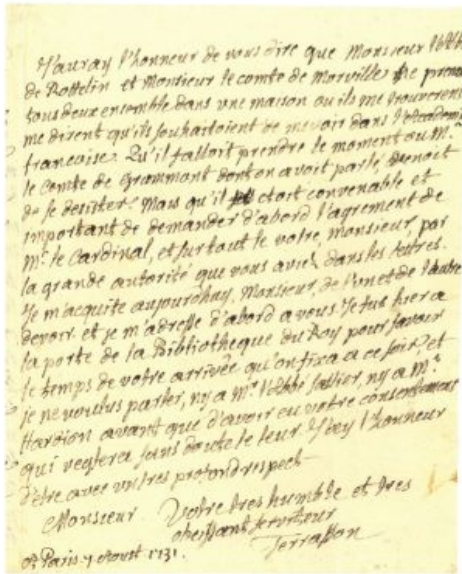 J'auray l'honneur de vous dire que Monsieur l'abbé
de Rottelin et Monsieur le comte de Morville
tous deux ensemble dans une maison ou ils me trouverent
me dirent qu'ils souhaitoient de me voir dans l'academie
francoise. Qu'il falloit prendre le moment ou Mr.
le comte de Grammont dont on avoit parlé, venoit
de se desister. Mais qu'il étoit convenable et
important de demander d'abord l'agrement de
Mr. le Cardinal, et surtout le votre, monsieur, par
la grande autorité que vous aviez dans les lettres.
Je m'acquite aujourdhuy, Monsieur, de l'un et de l'autre
devoir et je m'adresse d'abord a vous. Je fus hier a
la porte de la Bibliotheque du Roy pour savoir
le temps de votre arrivée qu'on fixa a ce soir, et
je ne voulus parler, ny a Mr. l'abbé Sallier, ny a Mr.
Hardion avant que d'avoir eu votre consentement
qui reglera sans doute le leur. J'ay l'honneur
d'etre avec un tres profond respect
Monsieur Votre tres humble et tres
obeissant serviteur
Terrasson
A Paris 7 Aoust 1731.